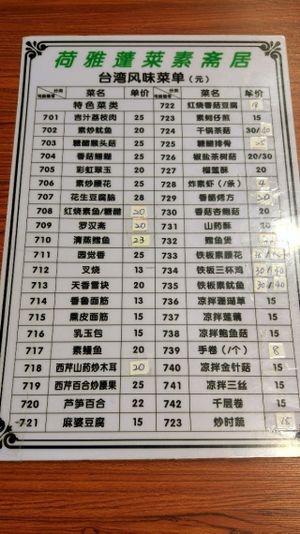 荷雅蓬莱素斋居
台湾风味菜单(元)
菜名 单价 菜名 单价
特色菜类 722 红烧香菇豆腐
701 吉汁荔枝肉 25 723 素蚵仔煎 15
702 素炒鱿鱼 20 724 干锅茶菇 30/40
703 糖醋猴头菇 25 725 糖醋排骨 25
704 香菇 20 726 椒盐茶树菇 20/30
705 彩虹翠玉 20 727 榴莲酥 20
706 素炒腰花 25 728 炸素虾(/条) 4
707 花生豆腐脑 28 729 香酷烤方 20
708 红烧素鱼/糖醋 20 730 香菇杏鲍菇 20
709 罗汉斋 20 731 山药酥 20
710 清蒸鳕鱼 23 732 鳕鱼煲
711 圆觉香 25 733 铁板素腰花
712 叉烧 13 734 铁板三杯鸡 30/40
713 天香雪块 20 735 铁板素鱿鱼 30/40
714 香鲁面筋 15 736 凉拌珊瑚草 15
715 熏皮面筋 15 737 凉拌莲藕 15
716 乳玉包 15 738 凉拌鲍鱼菇 15
717 素鳗鱼 15 739 手卷(/个) 8
718 西芹山药炒木耳 20 740 凉拌金针菇 15
719 西芹百合炒腰果 25 741 凉拌三丝 15
720 芦笋百合 22 742 千层卷 15
721 麻婆豆腐 15 723 炒时蔬 15